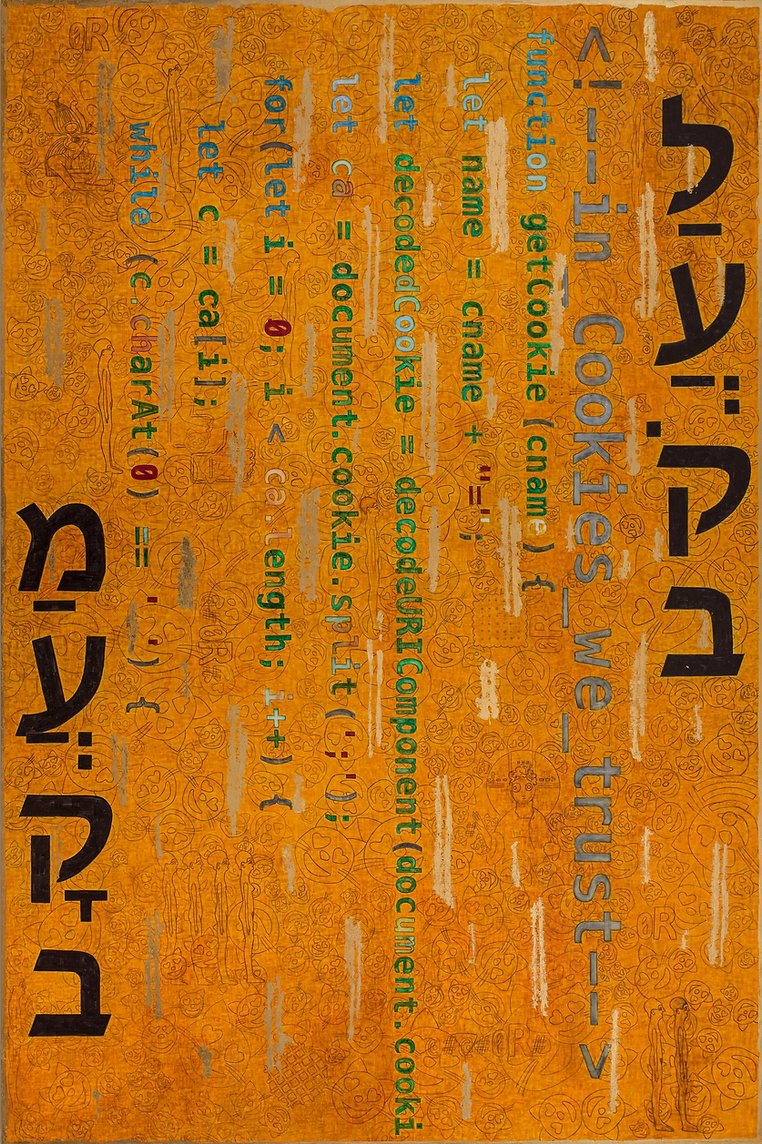 לַעֲקֹב
<!--in_Cookies_we_trust-->
function getCookie(cname) {
let name = cname + "=";
let decodedCookie = decodeURIComponent(document.cooki
let ca = document.cookie.split(';');
for(let i = 0; i < ca.length; i++) {
let c = ca[i];
while (c.charAt(0) == ' ') {
מַעֲקָב
0R
#0R#
0R
0R
#0R#